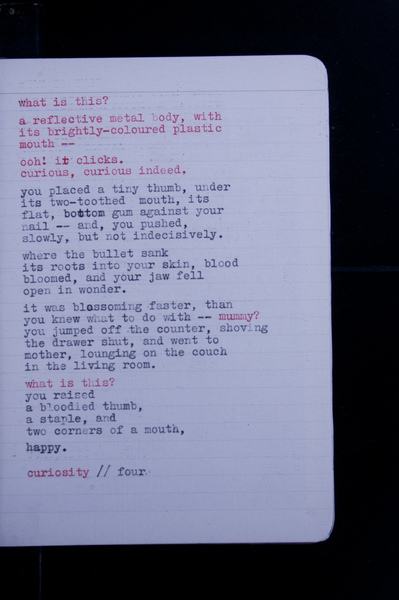 what is this?
a reflective metal body, with
its brightly-coloured plastic
mouth --
ooh! it clicks.
curious, curious indeed,
you placed a tiny thumb, under
its two-toothed mouth, its
flat, bottom gum against your
nail -- and, you pushed,
slowly, but not indecisively.
where the bullet sank
its roots into your skin, blood
bloomed, and your jaw fell
open in wonder.
it was blossoming faster, than
you knew what to do with -- mummy?
you jumped off the counter, shoving
the drawer shut, and went to
mother, lounging on the couch
in the living room.
what is this?
you raised
a bloodied thumb,
a staple, and
two corners of a mouth,
happy.
curiosity // four.